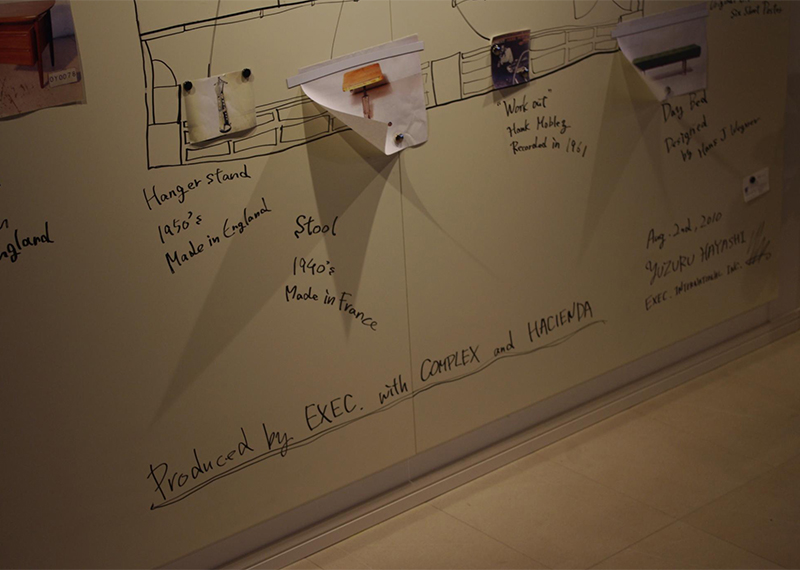 Six Sheet Poster
010078
"Work out"
Hank Mobley
Recorded in 1961
Day Bed
Designed
by Hans J Wegner
Hanger stand
1950's
Made in England
England
Stool
1940's
Made in France
Aug. 2nd, 2010
YUZURU HAYASHI
EXEC. INTERNATIONAL INC.
Produced by EXEC. with COMPLEX and HACIENDA